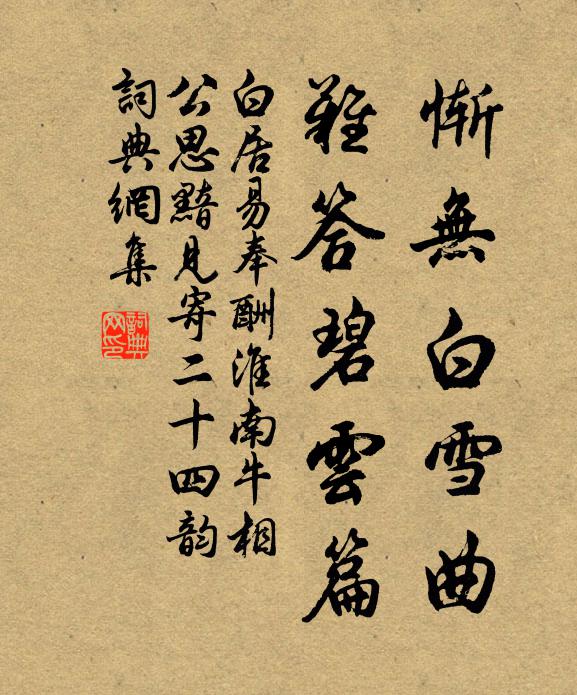 慚無白雪曲
難答碧雲篇
白居易奉酬淮南牛相
公思黯見寄二十四韵
詞典網集
詞典
网印